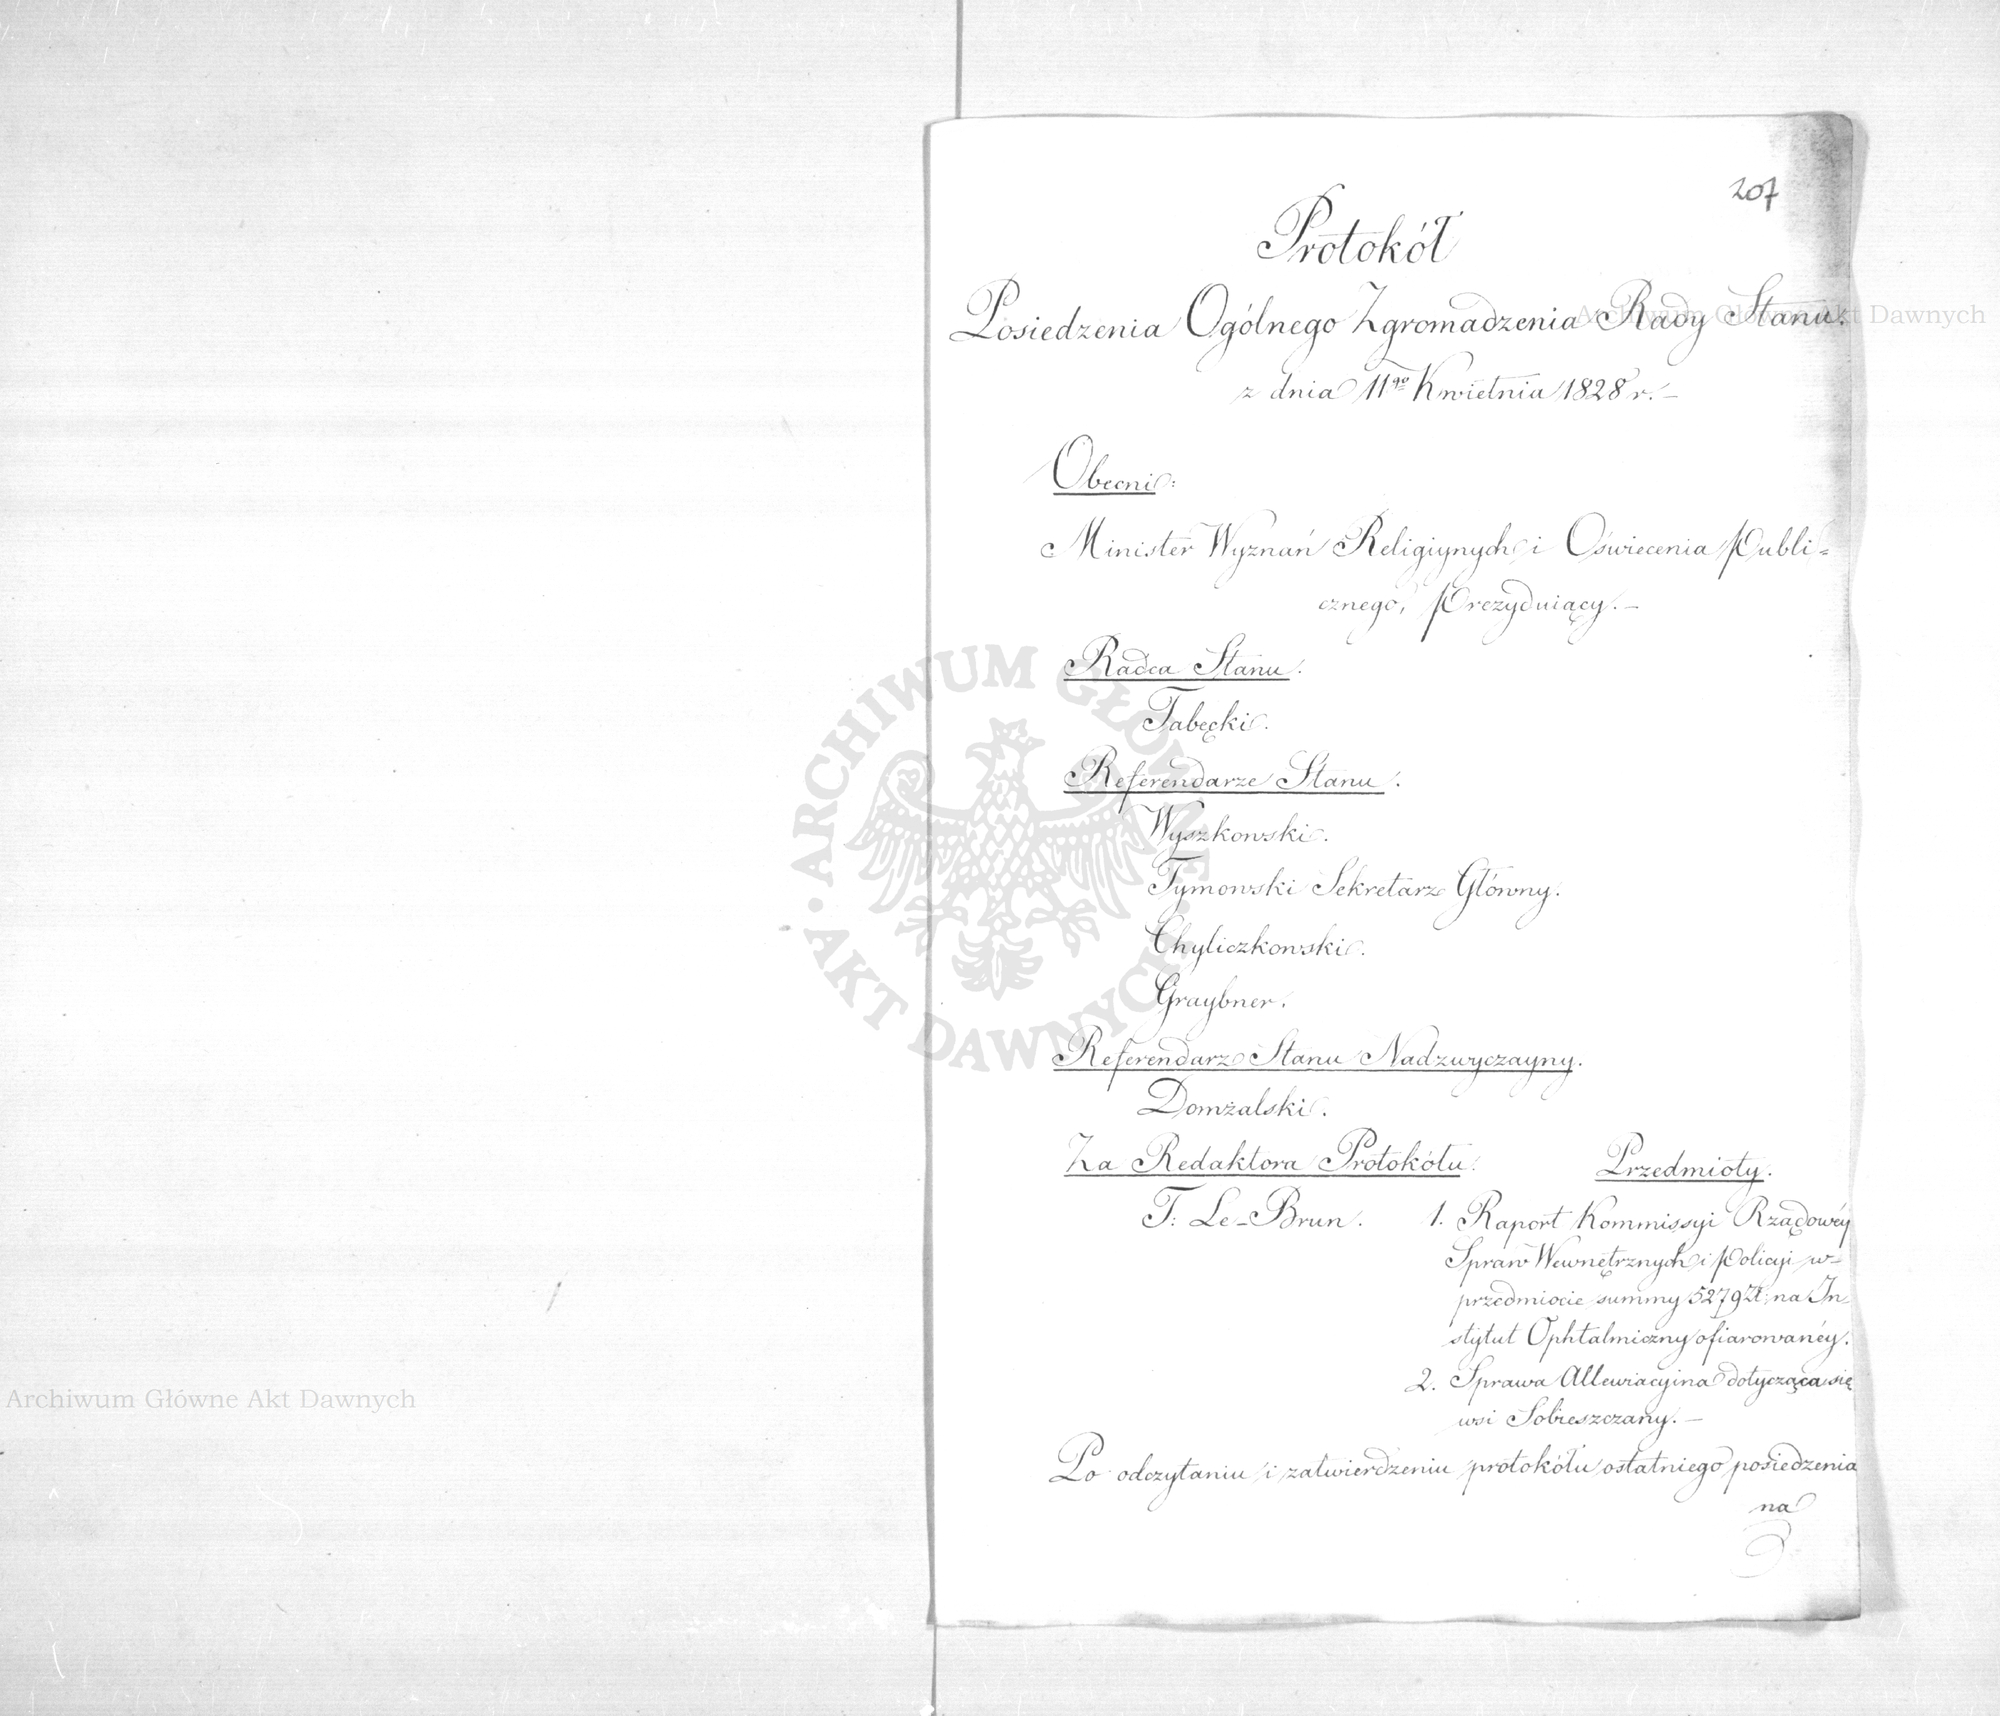 207
Protokół
Posiedzenia Ogólnego Zgromadzenia Rady Stanu.
z dnia 11go Kwietnia 1828 r. –
Obecni:
Minister Wyznań Religiynych i Oświecenia Publi=
cznego, Prezyduiący. –
Radca Stanu.
Tabęcki.
Referendarze Stanu.
Wyszkowski.
Tymowski Sekretarz Główny.
Chyliczkowski.
Graybner.
Referendarz Stanu Nadzwyczayny.
Domżalski.
Za Redaktora Protokółu.
T: Le-Brun.
Przedmioty.
1. Raport Kommissyi Rządowéy
Spraw Wewnętrznych i Policyi w
przedmiocie summy 5279 Zł: na In-
stytut Ophtalmiczny ofiarowanéy.
2. Sprawa Allewiacyina dotycząca się
wsi Sobieszczany. –
Po odczytaniu i zatwierdzeniu protokółu ostatniego posiedzenia
na
Archiwum Główne Akt Dawnych
ARCHIWUM GŁÓWNE AKT DAWNYCH
Archiwum Główne Akt Dawnych